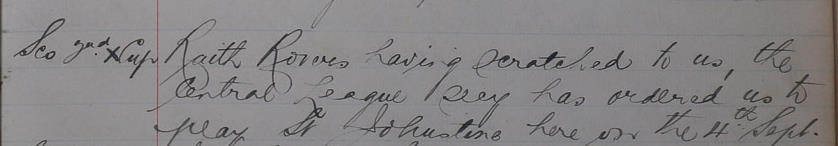 Sco 2nd X Cup Raith Rovers having scratched to us, the
Central League Secy has ordered us to
play St Johnstone here on the 4th Sept.